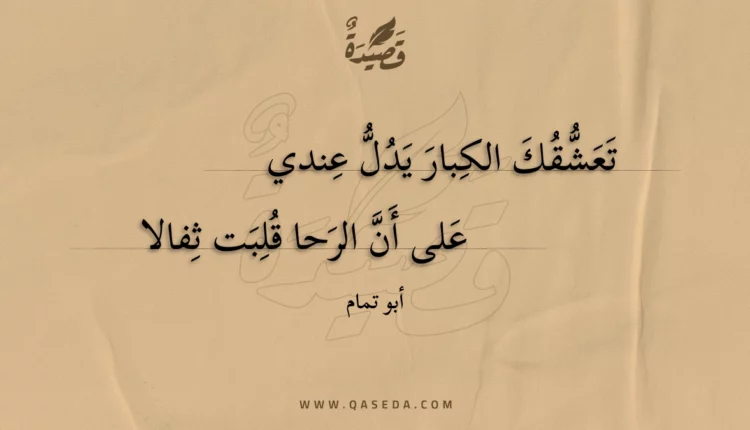 قَصِيدَةٌ
تَعَشُّقُكَ الكِبارَ يَدُلُّ عِندي
عَلى أَنَّ الرَحا قُلِبَت ثِفالا
أبو تمام
WWW.QASEDA.COM